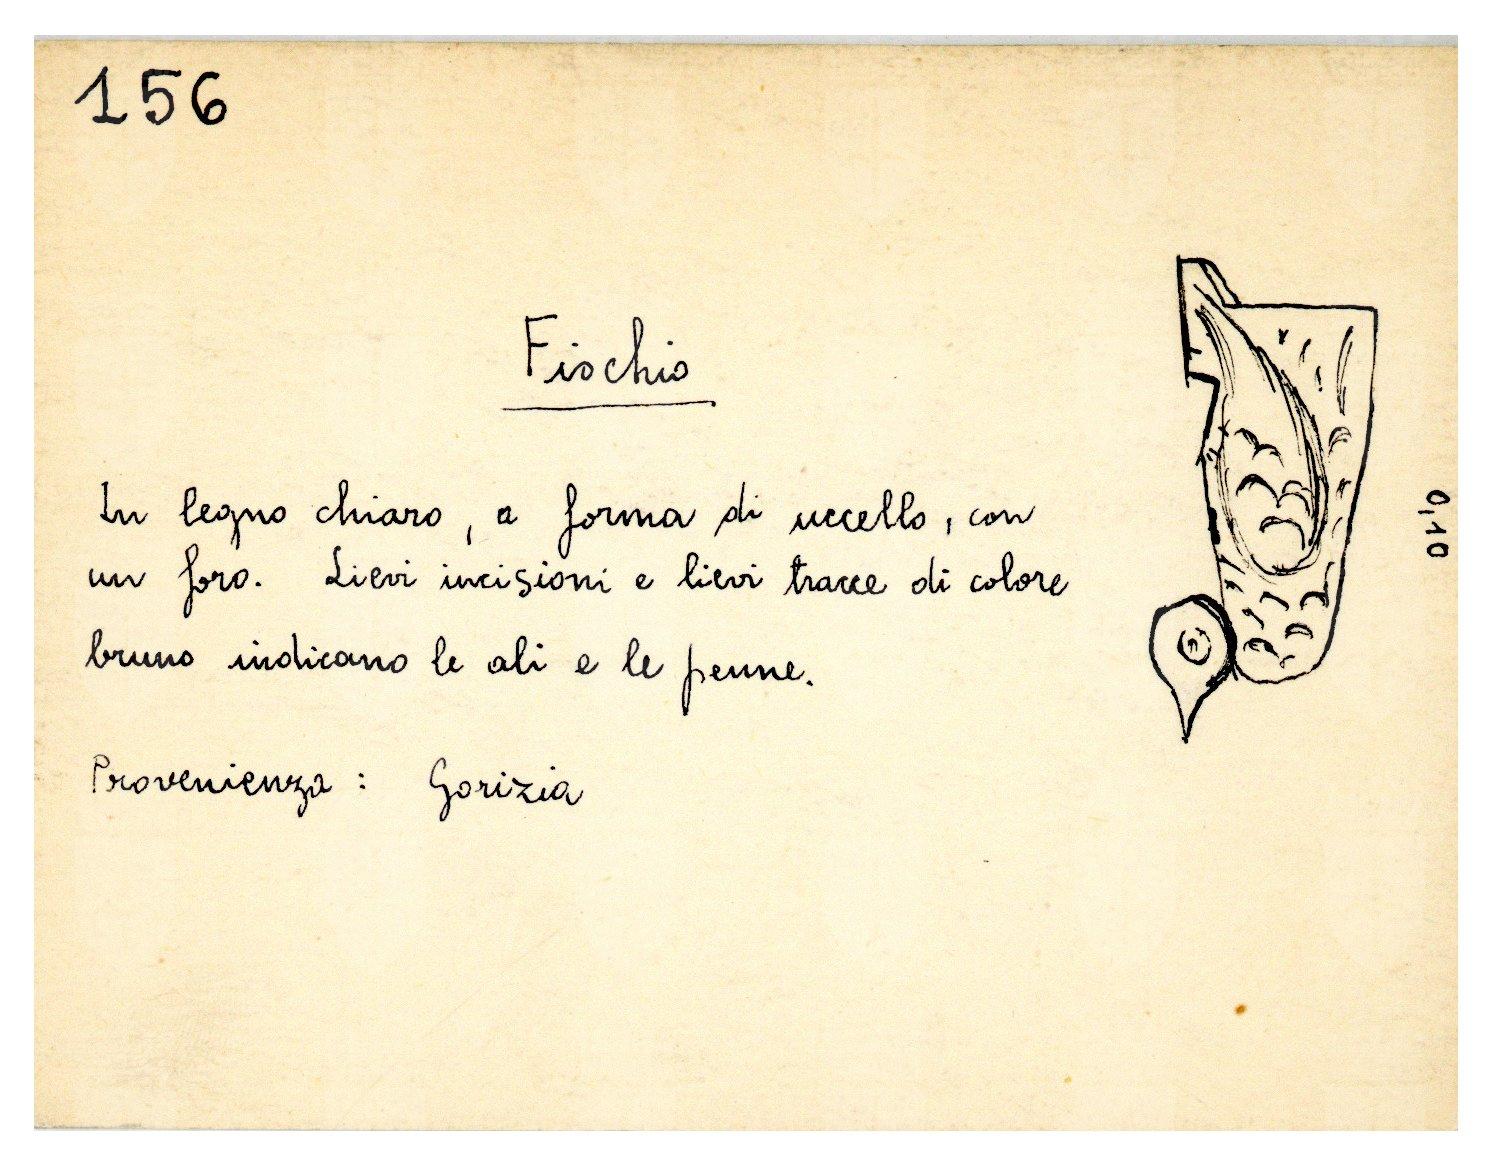 156
Fischio
In legno chiaro, a forma di uccello, con
un foro. Lievi incisioni e lievi tracce di colore
bruno indicano le ali e le penne.
Provenienza: Gorizia
0,10